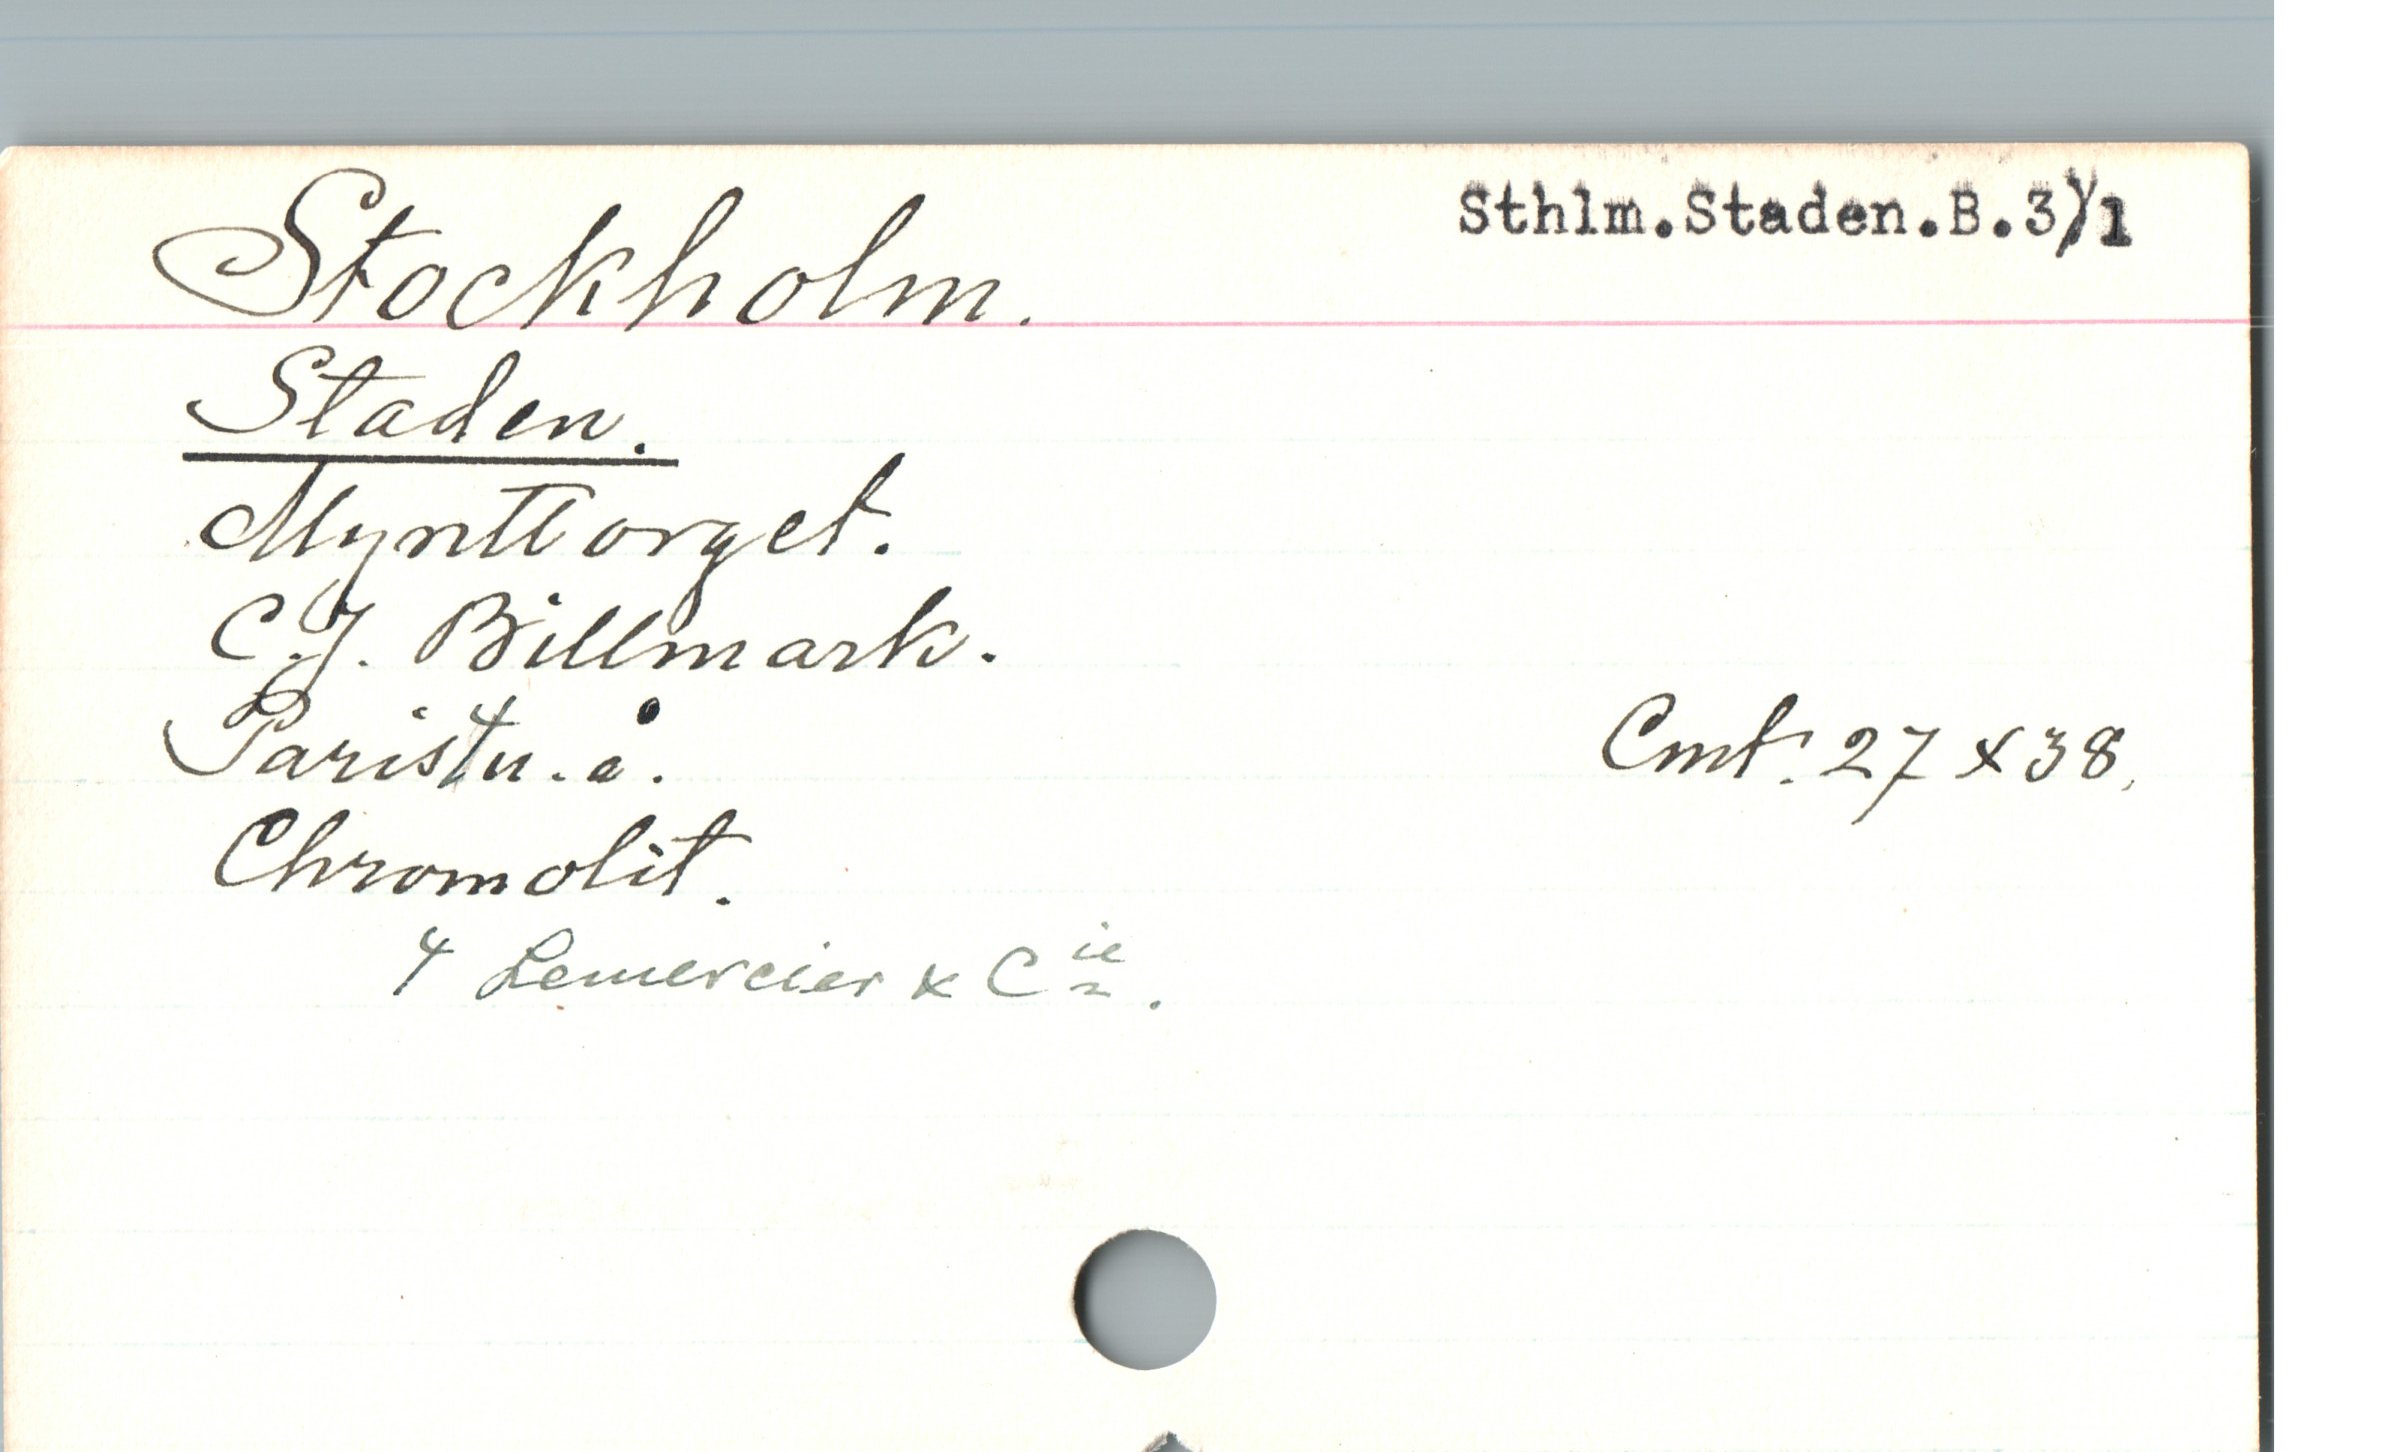 Stockholm.
Sthlm.Staden.B.3)1
Staden.
Mynttorget.
C.J. Billmark.
Paris 4 u. å.
Cmt. 27 x 38.
Chromolit.
4 Lemercier & Cie.